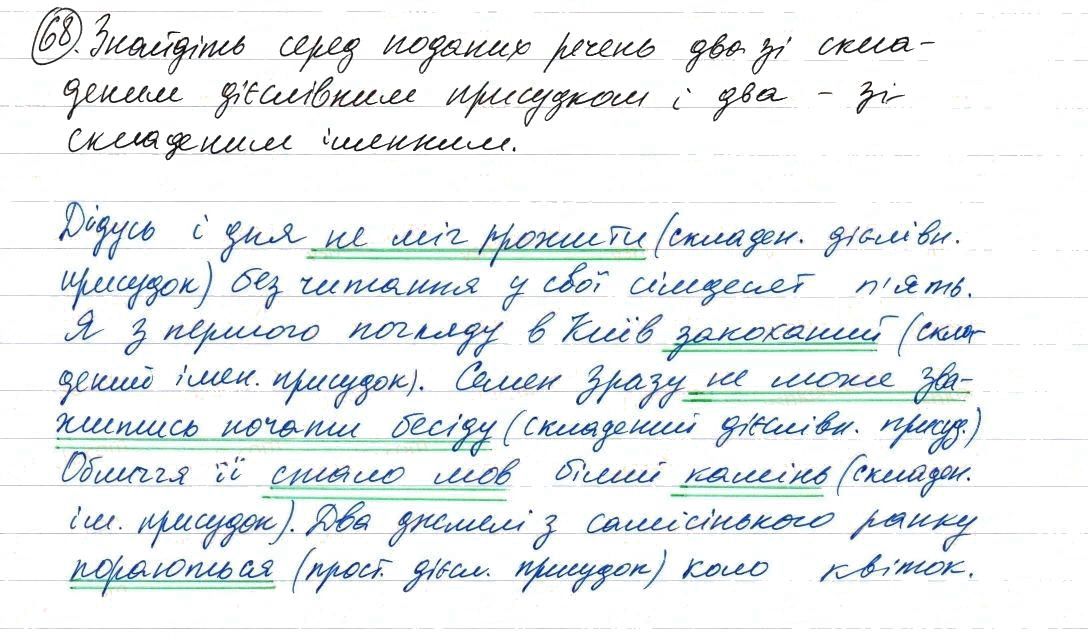 68. Знайдіть серед поданих речень два зі скла-
деним дієслівним присудком і два – зі
складеним іменним.
Дідусь і дня не міг прожити (складен. дієслівн.
присудок) без читання у свої сімдесят п'ять.
Я з першого погляду в Київ закоханий (скла-
дений імен. присудок). Семен зразу не може зва-
житись почати бесіду (складений дієслівн. присуд.)
Обличчя її стало мов білий камінь (складен.
ім. присудок). Два джмелі з самісінького ранку
пораються (прост. дієсл. присудок) коло квіток.